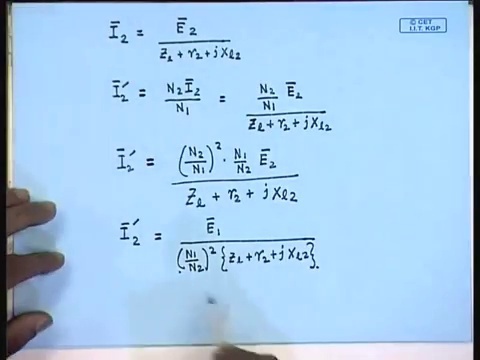 © CET
I.I.T. KGP
Ī₂ = Ē₂ / (z_l + r₂ + jx_l2)
Ī₂′ = N₂Ī₂ / N₁ = (N₂/N₁) Ē₂ / (z_l + r₂ + jx_l2)
Ī₂′ = (N₂/N₁)² · (N₁/N₂) Ē₂ / (z_l + r₂ + jx_l2)
Ī₂′ = Ē₁ / ((N₁/N₂)² {z_l + r₂ + jx_l2})